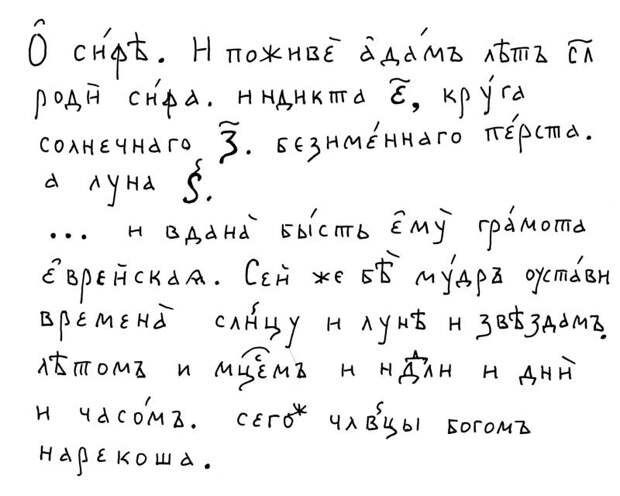 Ѻ҆ си́ѳѣ. И поживѐ а҆да́мъ лѣтъ с҃л
родѝ си́ѳа. индикта є҃, кру́га
солнечнаго з҃. безиме́ннаго пе́рста.
а луна ѕ҃.
... и вдана̀ бы́сть є҆мꙋ̀ гра́мота
є҆врейскаѧ. Сей же бѣ̀ мꙋ́дръ оуста́ви
времена̀ сл҃нцу и лунѣ и звѣздам.
лѣтомъ и мцⷭ҇емъ и нⷣли и днѝ
и часо́мъ. сегоⷤ члв҃цы богомъ
нарекоша.